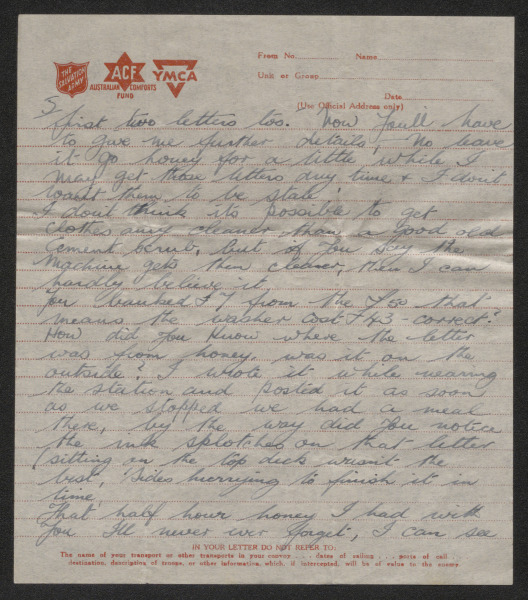 THE SALVATION ARMY
ACF
AUSTRALIAN COMFORTS FUND
YMCA
From No. Name
Unit or Group
Date
(Use Official Address only)
5
first two letters too. Now you'll have
to give me further details, No leave
it go honey for a little while I
may get those letters any time & I don't
want them to be stale.
I don't think its possible to get
clothes any cleaner than a good old
cement scrub, but if you say the
machine gets them cleaner, then I can
hardly believe it.
You banked £7 from the £50 that
means the washer cost £43 - correct?
How did you know where the letter
was from honey, was it on the
outside? I wrote it while nearing
the station and posted it as soon
as we stopped we had a meal
there, by the way did you notice
the ink splotches on that letter
(sitting on the top deck wasn't the
best, 'sides hurrying to finish it in
time.
That half hour honey I had with
you I'll never ever forget, I can see
IN YOUR LETTER DO NOT REFER TO:
The name of your transport or other transports in your convoy . . . dates of sailing . . . ports of call
destination, description of troops, or other information, which, if intercepted, will be of value to the enemy